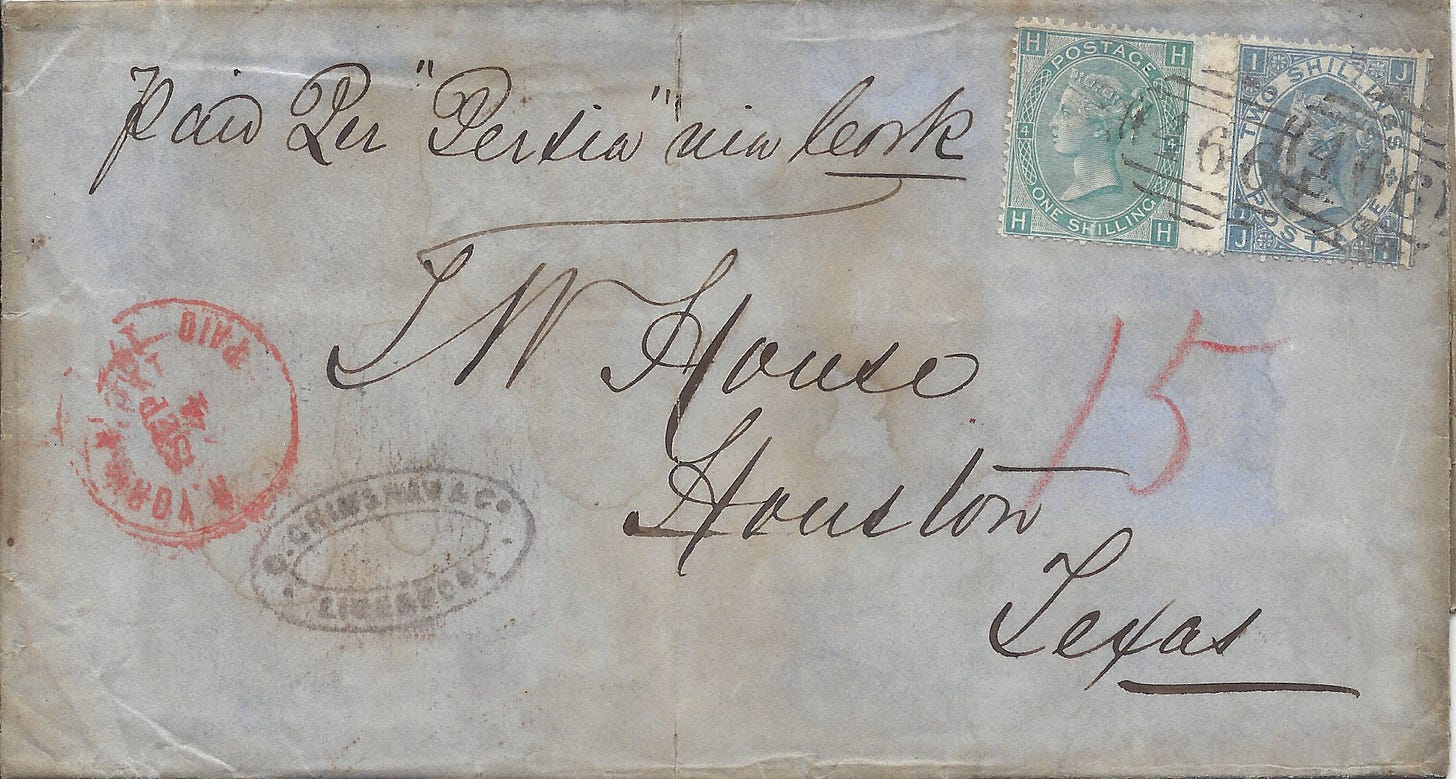 Paid Per "Persia" via Cork
H H
POSTAGE
4 4
ONE SHILLING
H H
I J
TWO SHILLINGS
POSTAGE
J I
466
466
J W House
15
Houston
Texas
PAID
SEP
N. YORK
GRIMSHAW & Co
LIVERPOOL